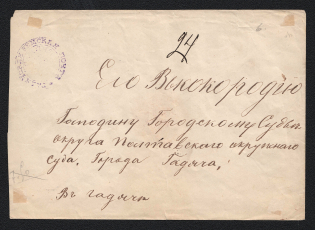 24
Его Высокородію
Господину Городскому Судьѣ
округа Полтавскаго окружнаго
суда, Города Гадяча,
Въ Гадячъ